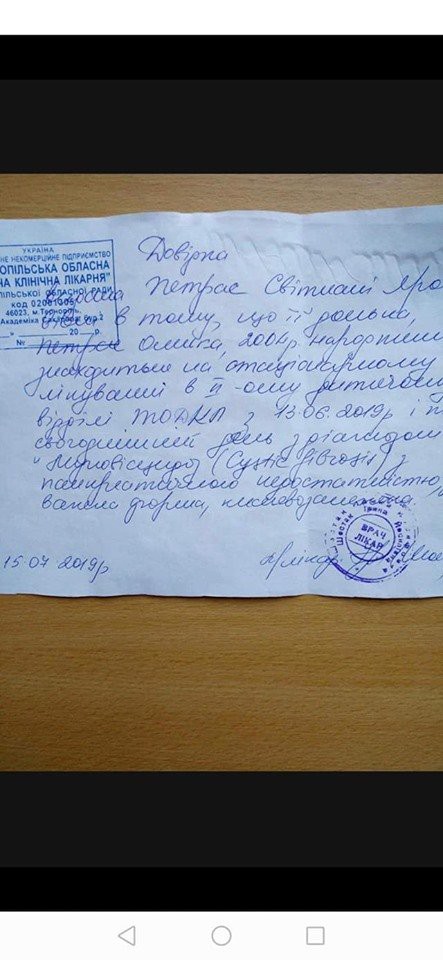 УКРАЇНА
НЕ НЕКОМЕРЦІЙНЕ ПІДПРИЄМСТВО
ОПІЛЬСЬКА ОБЛАСНА
НА КЛІНІЧНА ЛІКАРНЯ"
ПІЛЬСЬКОЇ ОБЛАСНОЇ РАДИ
код 02001305
46023, м.Тернопіль,
20 р.
№
Довідка
Петрас Світлані Яро
в тому, що її донька,
Петрас 2004р народження
знаходиться на стаціонарному
лікуванні в ІІ-ому дитячому
відділі ТОДКЛ з 13.06.2019р і п
сьогоднішній день з діагнозом
"Муковісцидоз (Cystic fibrosis) з
панкреатичною недостатністю,
важка форма,
Шостак Ірина
ВРАЧ
ЛІКАР
15.07 2019р